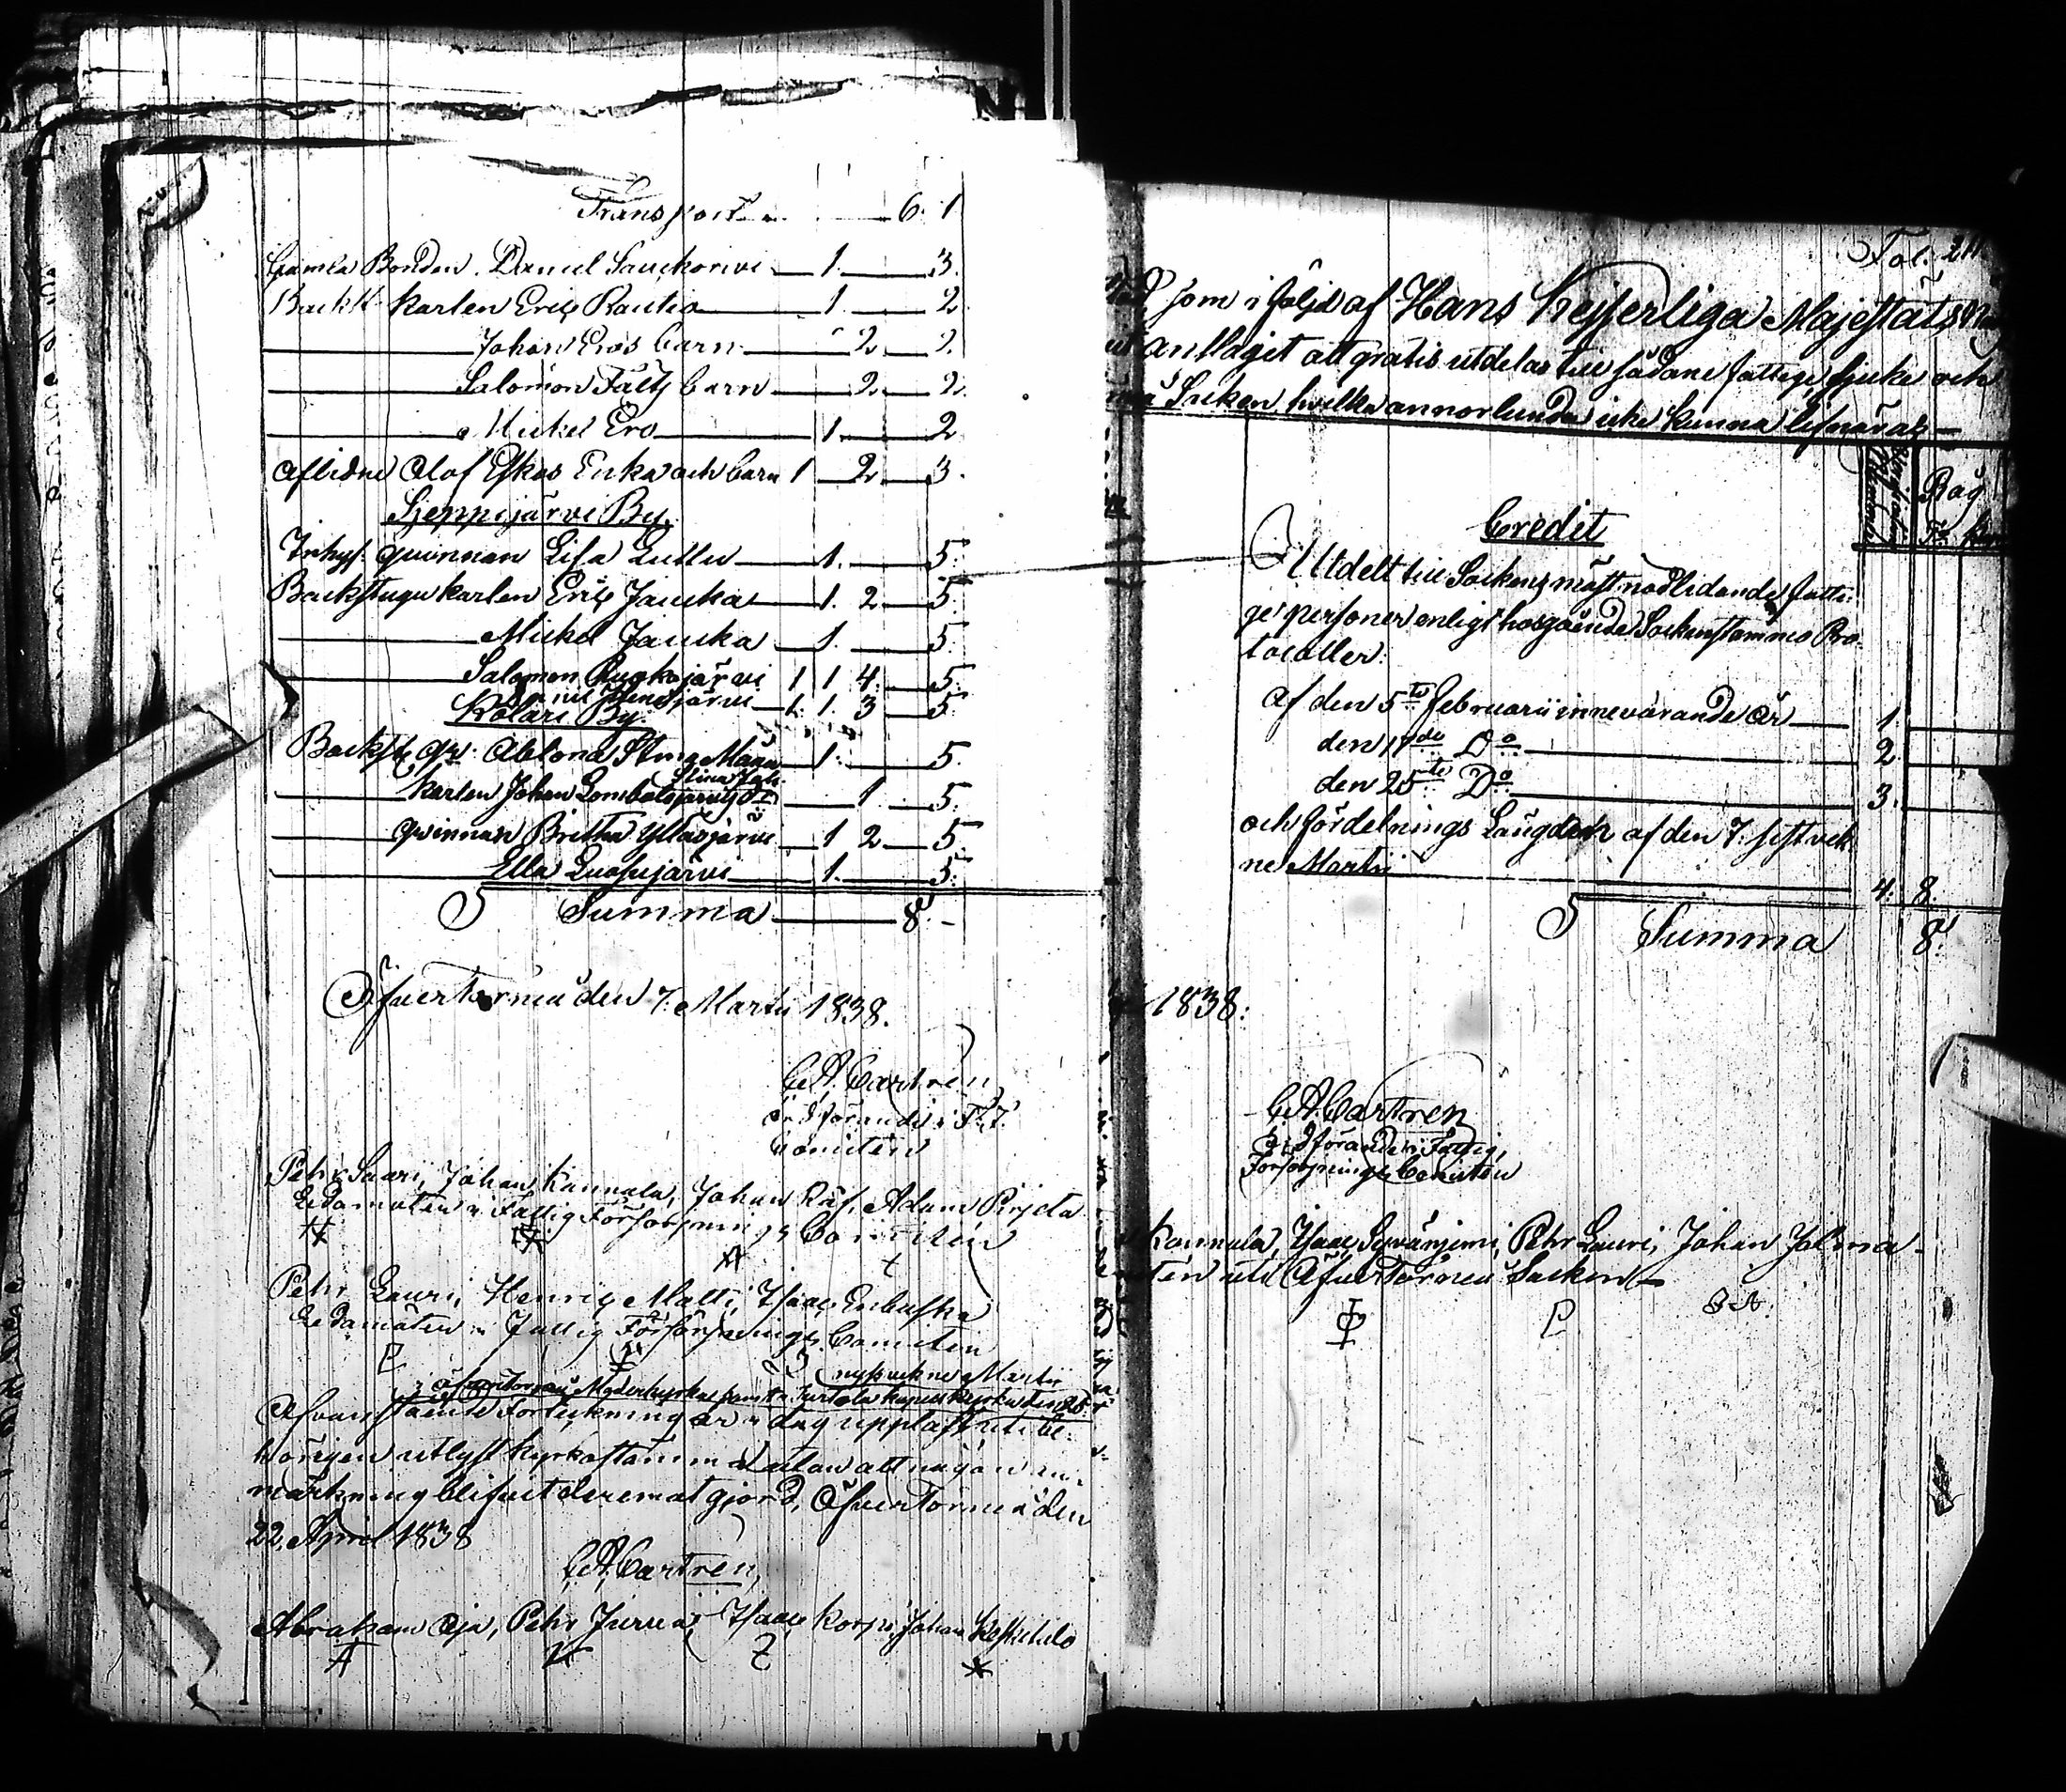 Transport 6. 1
Gamla Bonden Daniel Sauckorivi 1. 3.
Backst. karlen Eric Rautio 1. 2
Johan Eros barn 2 2.
Salomon Fält barn 2 2.
Mickel Ero 1. 2
Aflidne Olof Eskos Enka och barn 1 2 3.
Sjeppijärvi By.
Inhys. qvinnan Lisa Lullu 1. 5.
Backstugu karlen Eric Jaucka 1. 2 5
Mickel Jaucka 1. 5.
Salomon järvi 1 1 4 5.
järvi 1. 1. 3 5.
Kolari By.
Backst. qv. Stina 1. 5.
Stina
karlen Johan Lombolojärvi 1 5.
qvinnan Britha Ylläsjärvi 1 2 5.
Ella Luosujärvi 1. 5.
Summa 8. -
ÖfverTorneå den 7. Martii 1838.
C. A. Castrén
Ordförande i
Comitén
Pehr Saari, Johan Kannala, Johan Räf, Adam Pirjeta
Ledamöter i Fattig Försörjnings Comitén
Pehr Lauri, Henric Matti, Isaac Enbuska
Ledamöter i Fattig Försörjnings Comitén
P
nystvekne Martii
i ÖfverTorneå Moderkyrka samt i Turtola kapell kyrka den 25
Ofvanstående Förteckning är i dag uppläst uti be-
hörigen utlyst kyrkostämma utan att någon an-
märkning blifvit deremot gjord, ÖfverTorneå den
22. April 1838
C. A. Castrén
Abraham Oja, Pehr Juru, Isaac Korpi, Johan Keskitalo
A Z
Fol. 211
som i följd af Hans Kejserliga Majestäts
anslaget att gratis utdelas till sådane fattige sjuke och
Socken hvilka annorlunda icke kunna lifnäras
Råg
Credit
Utdelt till Sockens mäst nödlidande fatti-
ge personer enligt hosgående Sockenstämmo Pro-
tocoller:
af den 5te Februarii innevarande år 1
den 17de Do 2
den 25te Do 3.
och fördelnings Längden af den 7. sistvek-
ne Martii 4. 8.
Summa 8.
1838.
C. A. Castrén
Ordförande i Fattig
Försörjnings Comitén
Kannala, Isaac Syvänjemi, Pehr Lauri, Johan
uti ÖfverTorneå Socken
P